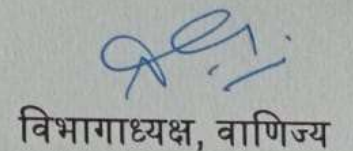 विभागाध्यक्ष, वाणिज्य